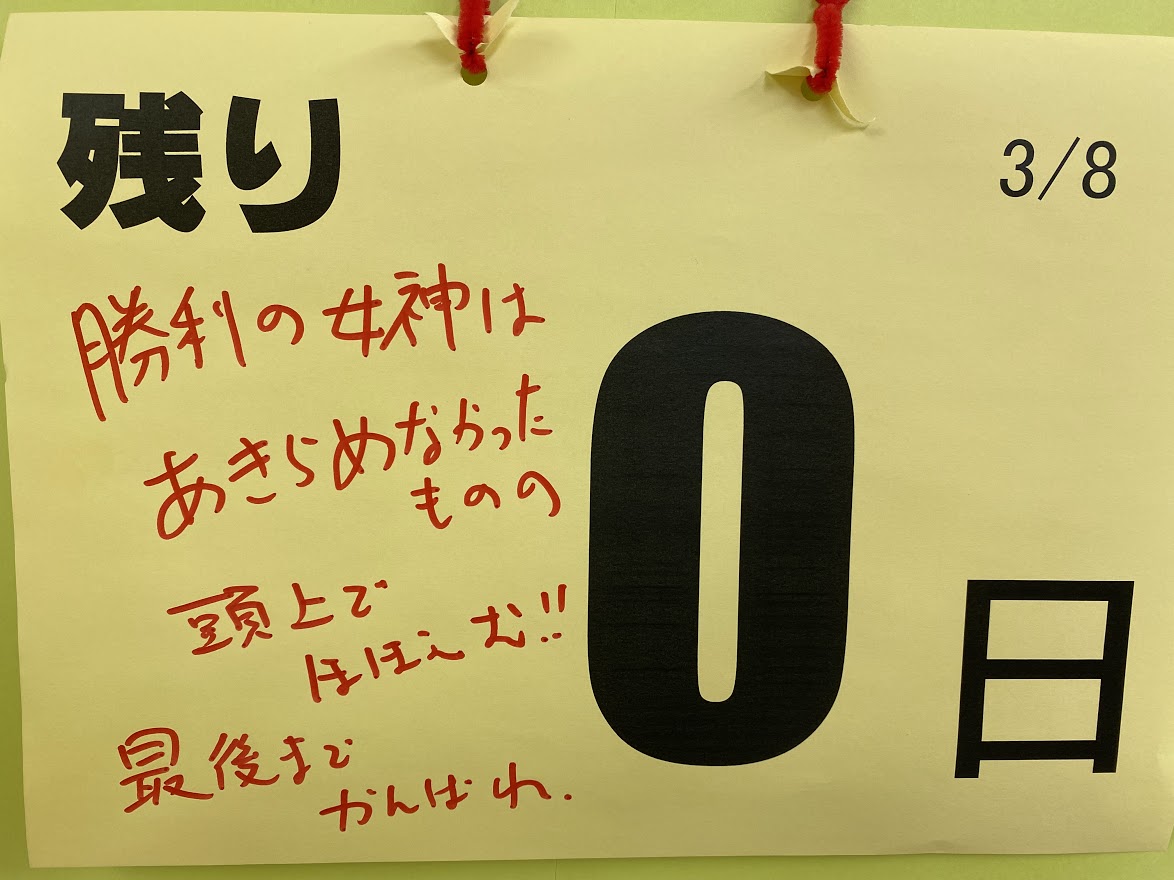 残り
3/8
勝利の女神は
あきらめなかった
ものの
頭上で
ほほえむ!!
最後まで
がんばれ.
0日